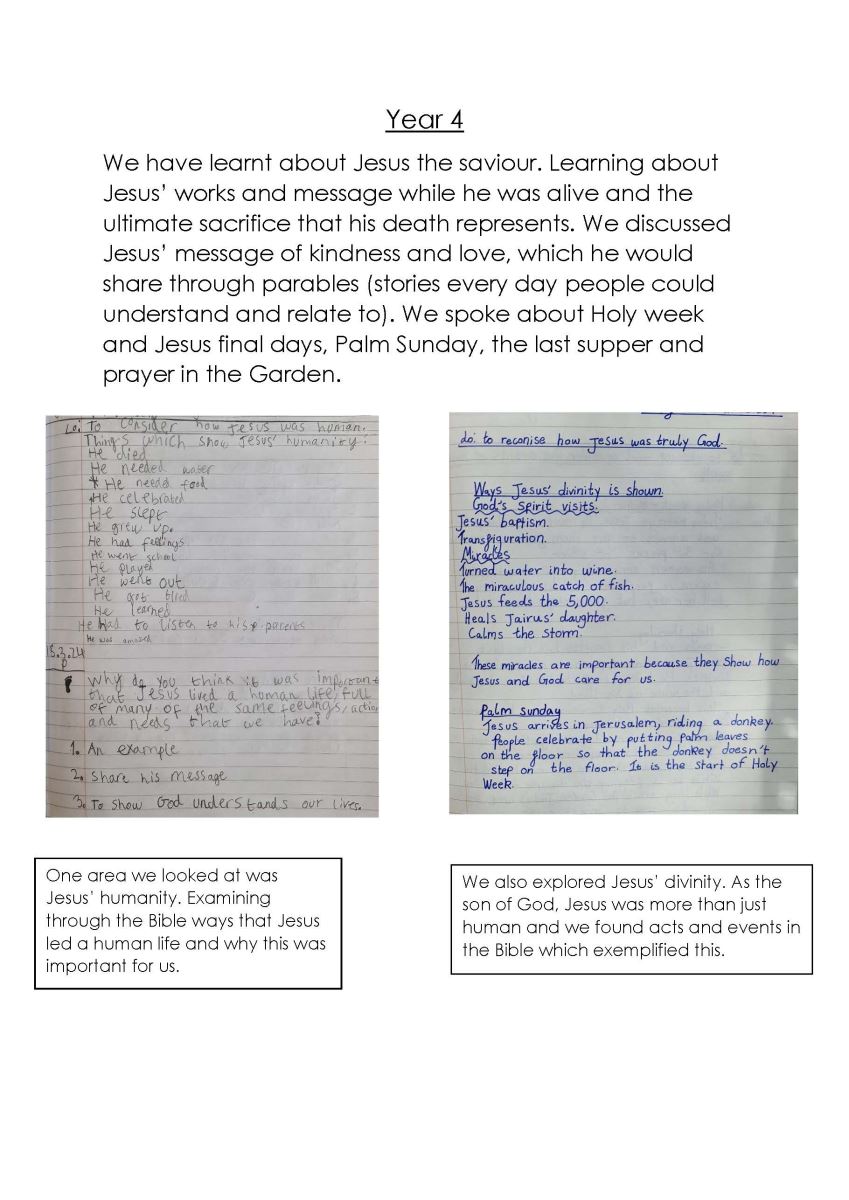 Year 4
We have learnt about Jesus the saviour. Learning about
Jesus' works and message while he was alive and the
ultimate sacrifice that his death represents. We discussed
Jesus' message of kindness and love, which he would
share through parables (stories every day people could
understand and relate to). We spoke about Holy week
and Jesus final days, Palm Sunday, the last supper and
prayer in the Garden.
Lo: To consider how Jesus was human.
Things which show Jesus' humanity:
He died
He needed water
* He needed food
He celebrated
He slept
He grew up.
He had feelings
He went school
He played
He went out
He got tired
He learned
He had to listen to his parents
He was amazed
15.3.24
Why do you think it was important
that Jesus lived a human life, full
of many of the same feelings, action
and needs that we have?
1. An example
2. Share his message
3. To show God understands our lives.
do: to reconise how Jesus was truly God.
Ways Jesus' divinity is shown.
God's spirit visits:
Jesus' baptism.
Transfiguration.
Miracles
Turned water into wine.
The miraculous catch of fish.
Jesus feeds the 5,000.
Heals Jairus' daughter.
Calms the storm.
These miracles are important because they show how
Jesus and God care for us.
Palm Sunday
Jesus arrives in Jerusalem, riding a donkey.
People celebrate by putting palm leaves
on the floor so that the donkey doesn't
step on the floor. It is the start of Holy
Week.
One area we looked at was
Jesus' humanity. Examining
through the Bible ways that Jesus
led a human life and why this was
important for us.
We also explored Jesus' divinity. As the
son of God, Jesus was more than just
human and we found acts and events in
the Bible which exemplified this.